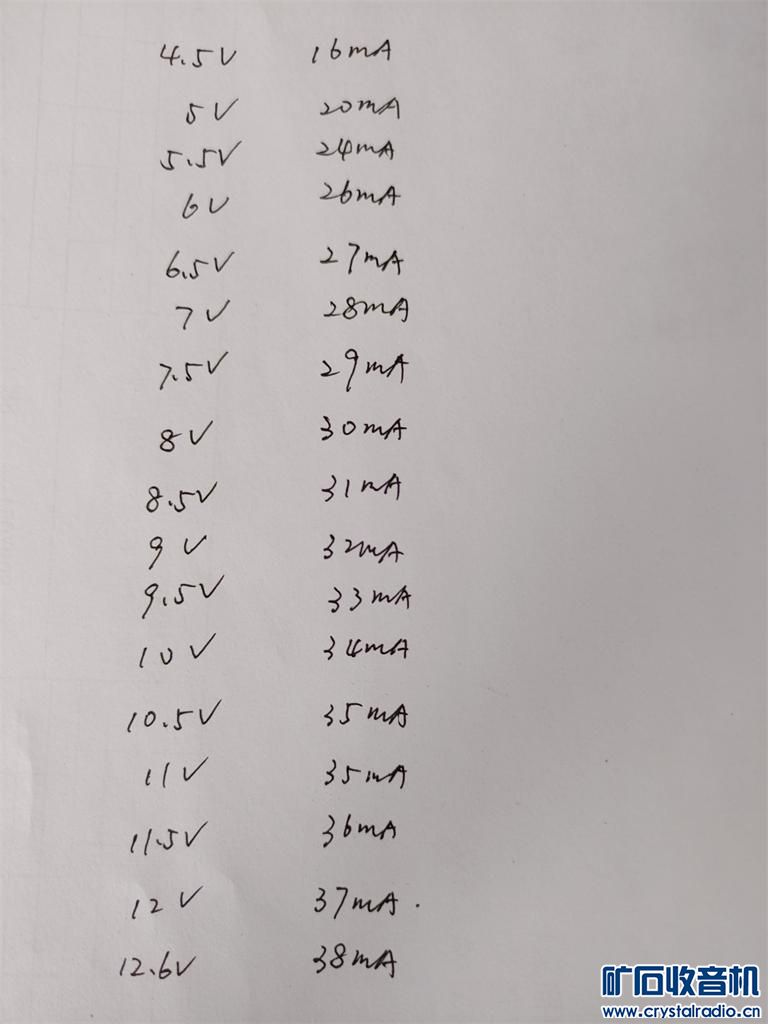 4.5V 16mA
5V 20mA
5.5V 24mA
6V 26mA
6.5V 27mA
7V 28mA
7.5V 29mA
8V 30mA
8.5V 31mA
9V 32mA
9.5V 33mA
10V 34mA
10.5V 35mA
11V 35mA
11.5V 36mA
12V 37mA.
12.6V 38mA
矿石收音机
www.crystalradio.cn